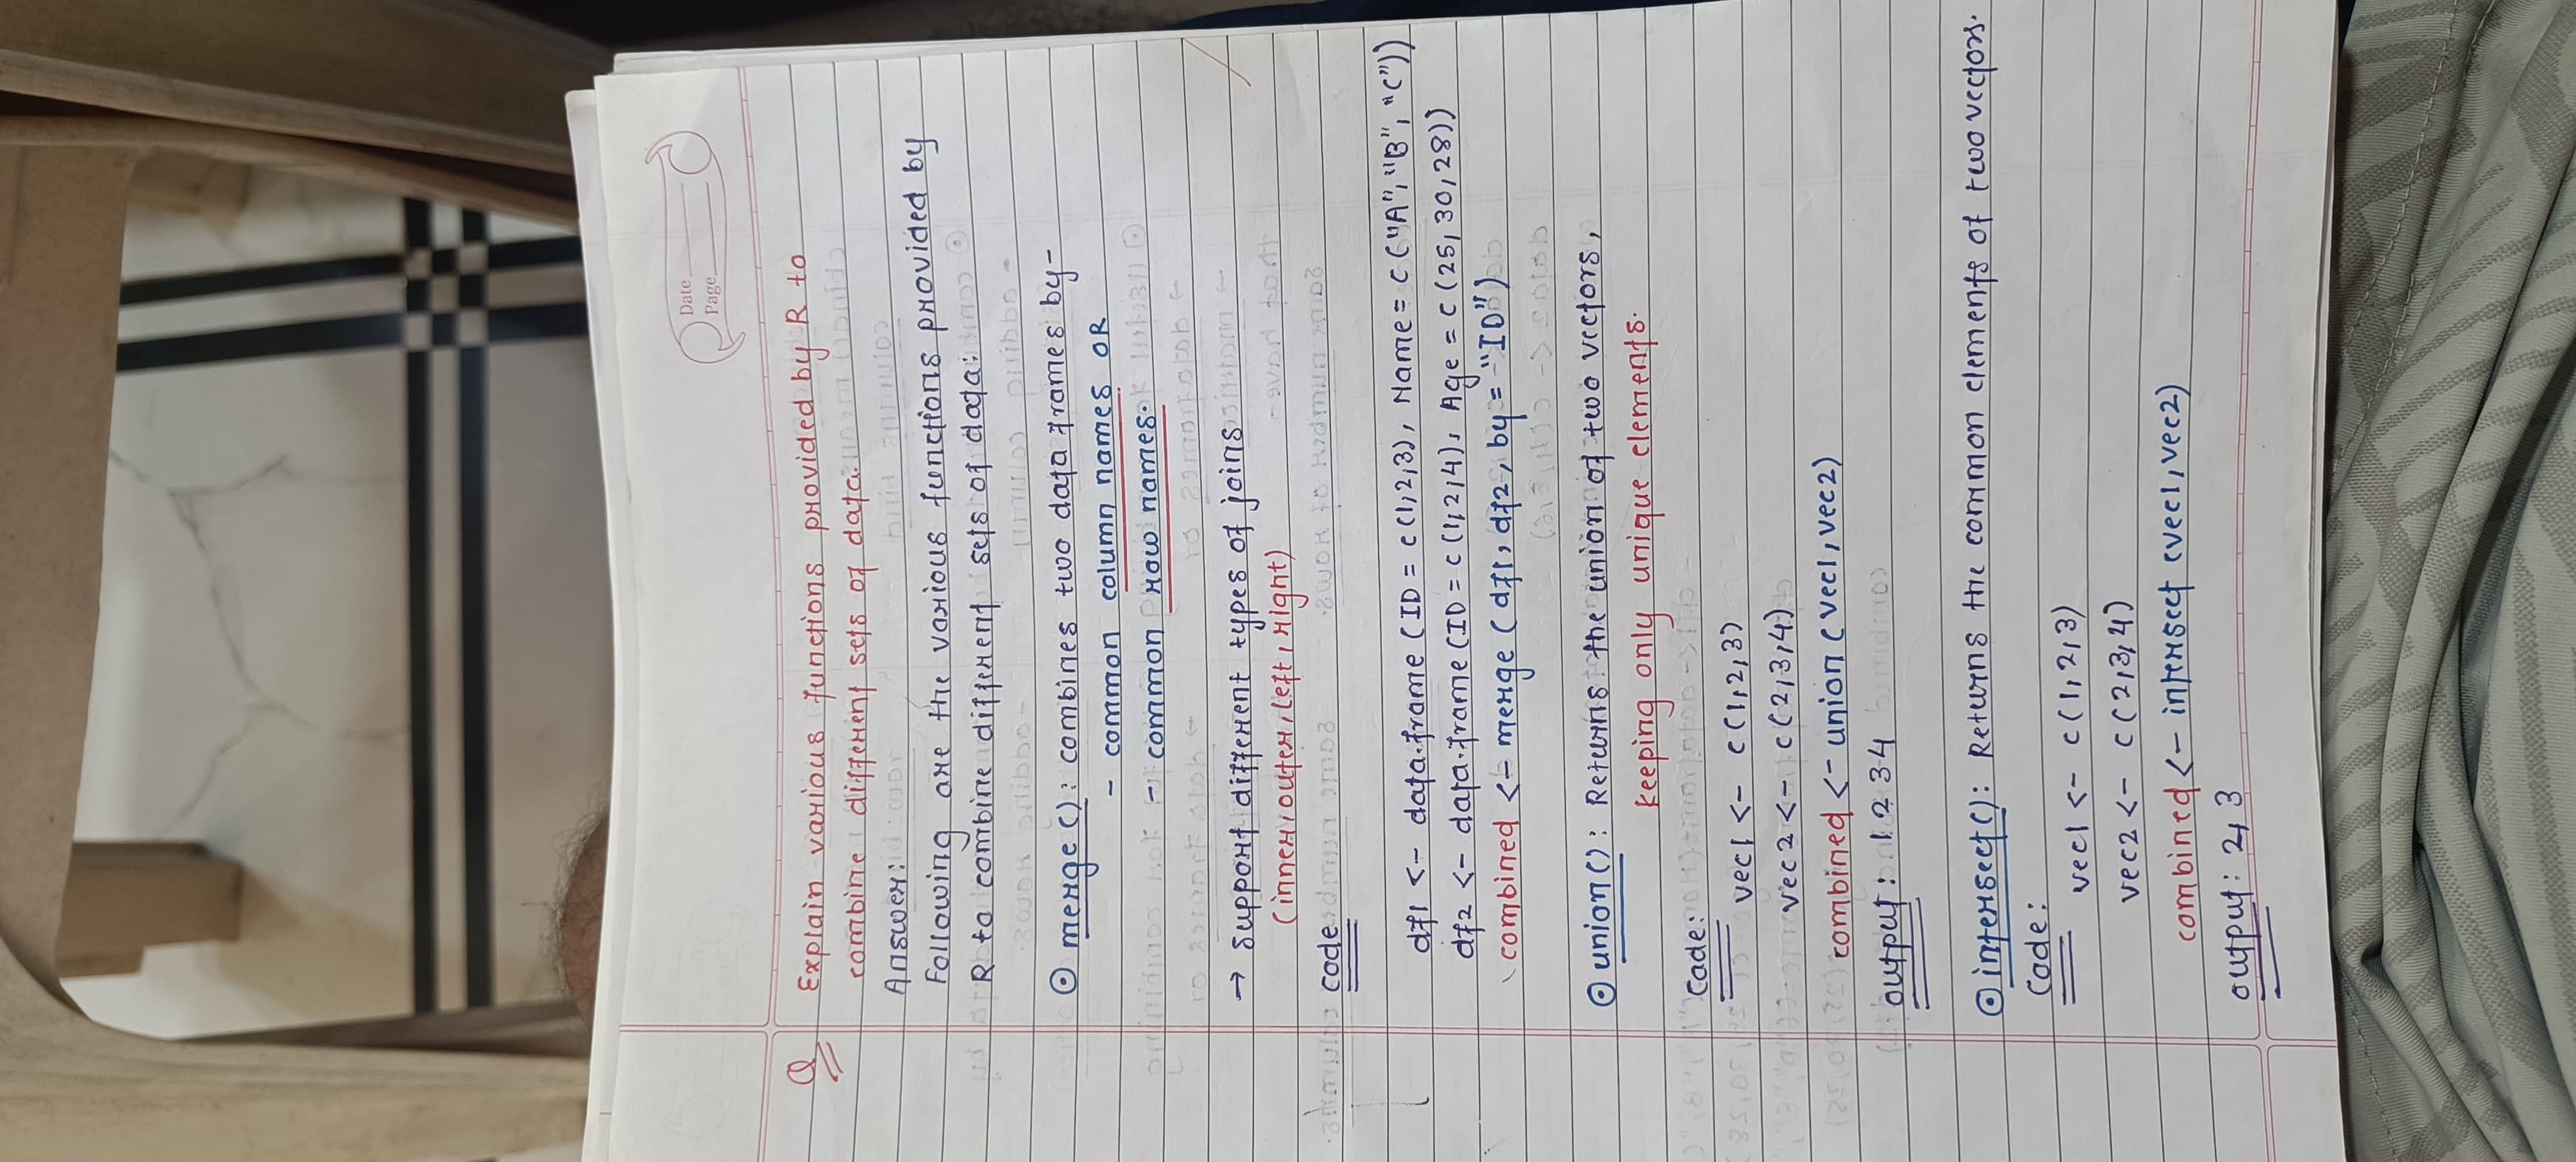 Date
Page
Q Explain various functions provided by R to
combine different sets of data.
Answer:
Following are the various functions provided by
R to combine different sets of data:
⊙ merge(): combines two data frames by-
- common column names OR
- common row names.
→ support different types of joins
(inner, outer, left, right)
code:
df1 <- data.frame (ID = c(1,2,3), Name = c("A", "B", "C"))
df2 <- data.frame (ID = c(1,2,4), Age = c(25,30,28))
combined <- merge (df1, df2, by = "ID")
⊙ union(): Returns the union of two vectors,
keeping only unique elements.
Code:
vec1 <- c(1,2,3)
vec2 <- c(2,3,4)
combined <- union (vec1, vec2)
output: 1 2 3 4
⊙ intersect(): Returns the common elements of two vectors.
Code:
vec1 <- c(1,2,3)
vec2 <- c(2,3,4)
combined <- intersect (vec1, vec2)
output: 2, 3